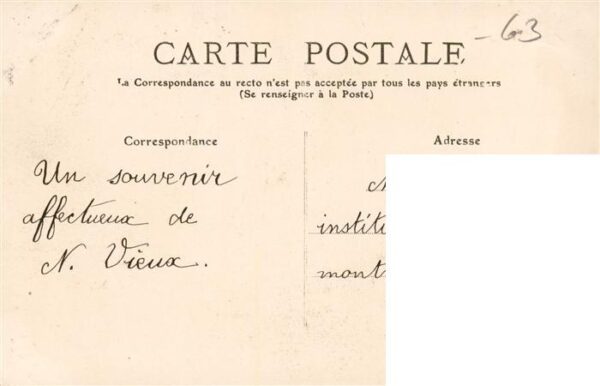 -63
CARTE POSTALE
La Correspondance au recto n'est pas acceptée par tous les pays étrangers
(Se renseigner à la Poste)
Correspondance
Adresse
Un souvenir
affectueux de
N. Vieux.